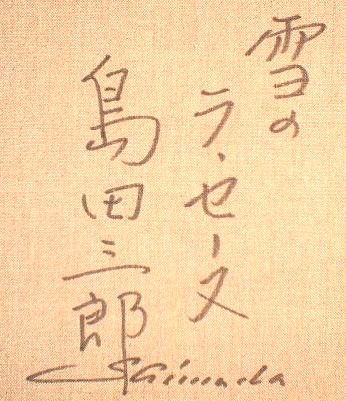 雪の
ラ、セーヌ
島田三郎
Shimada